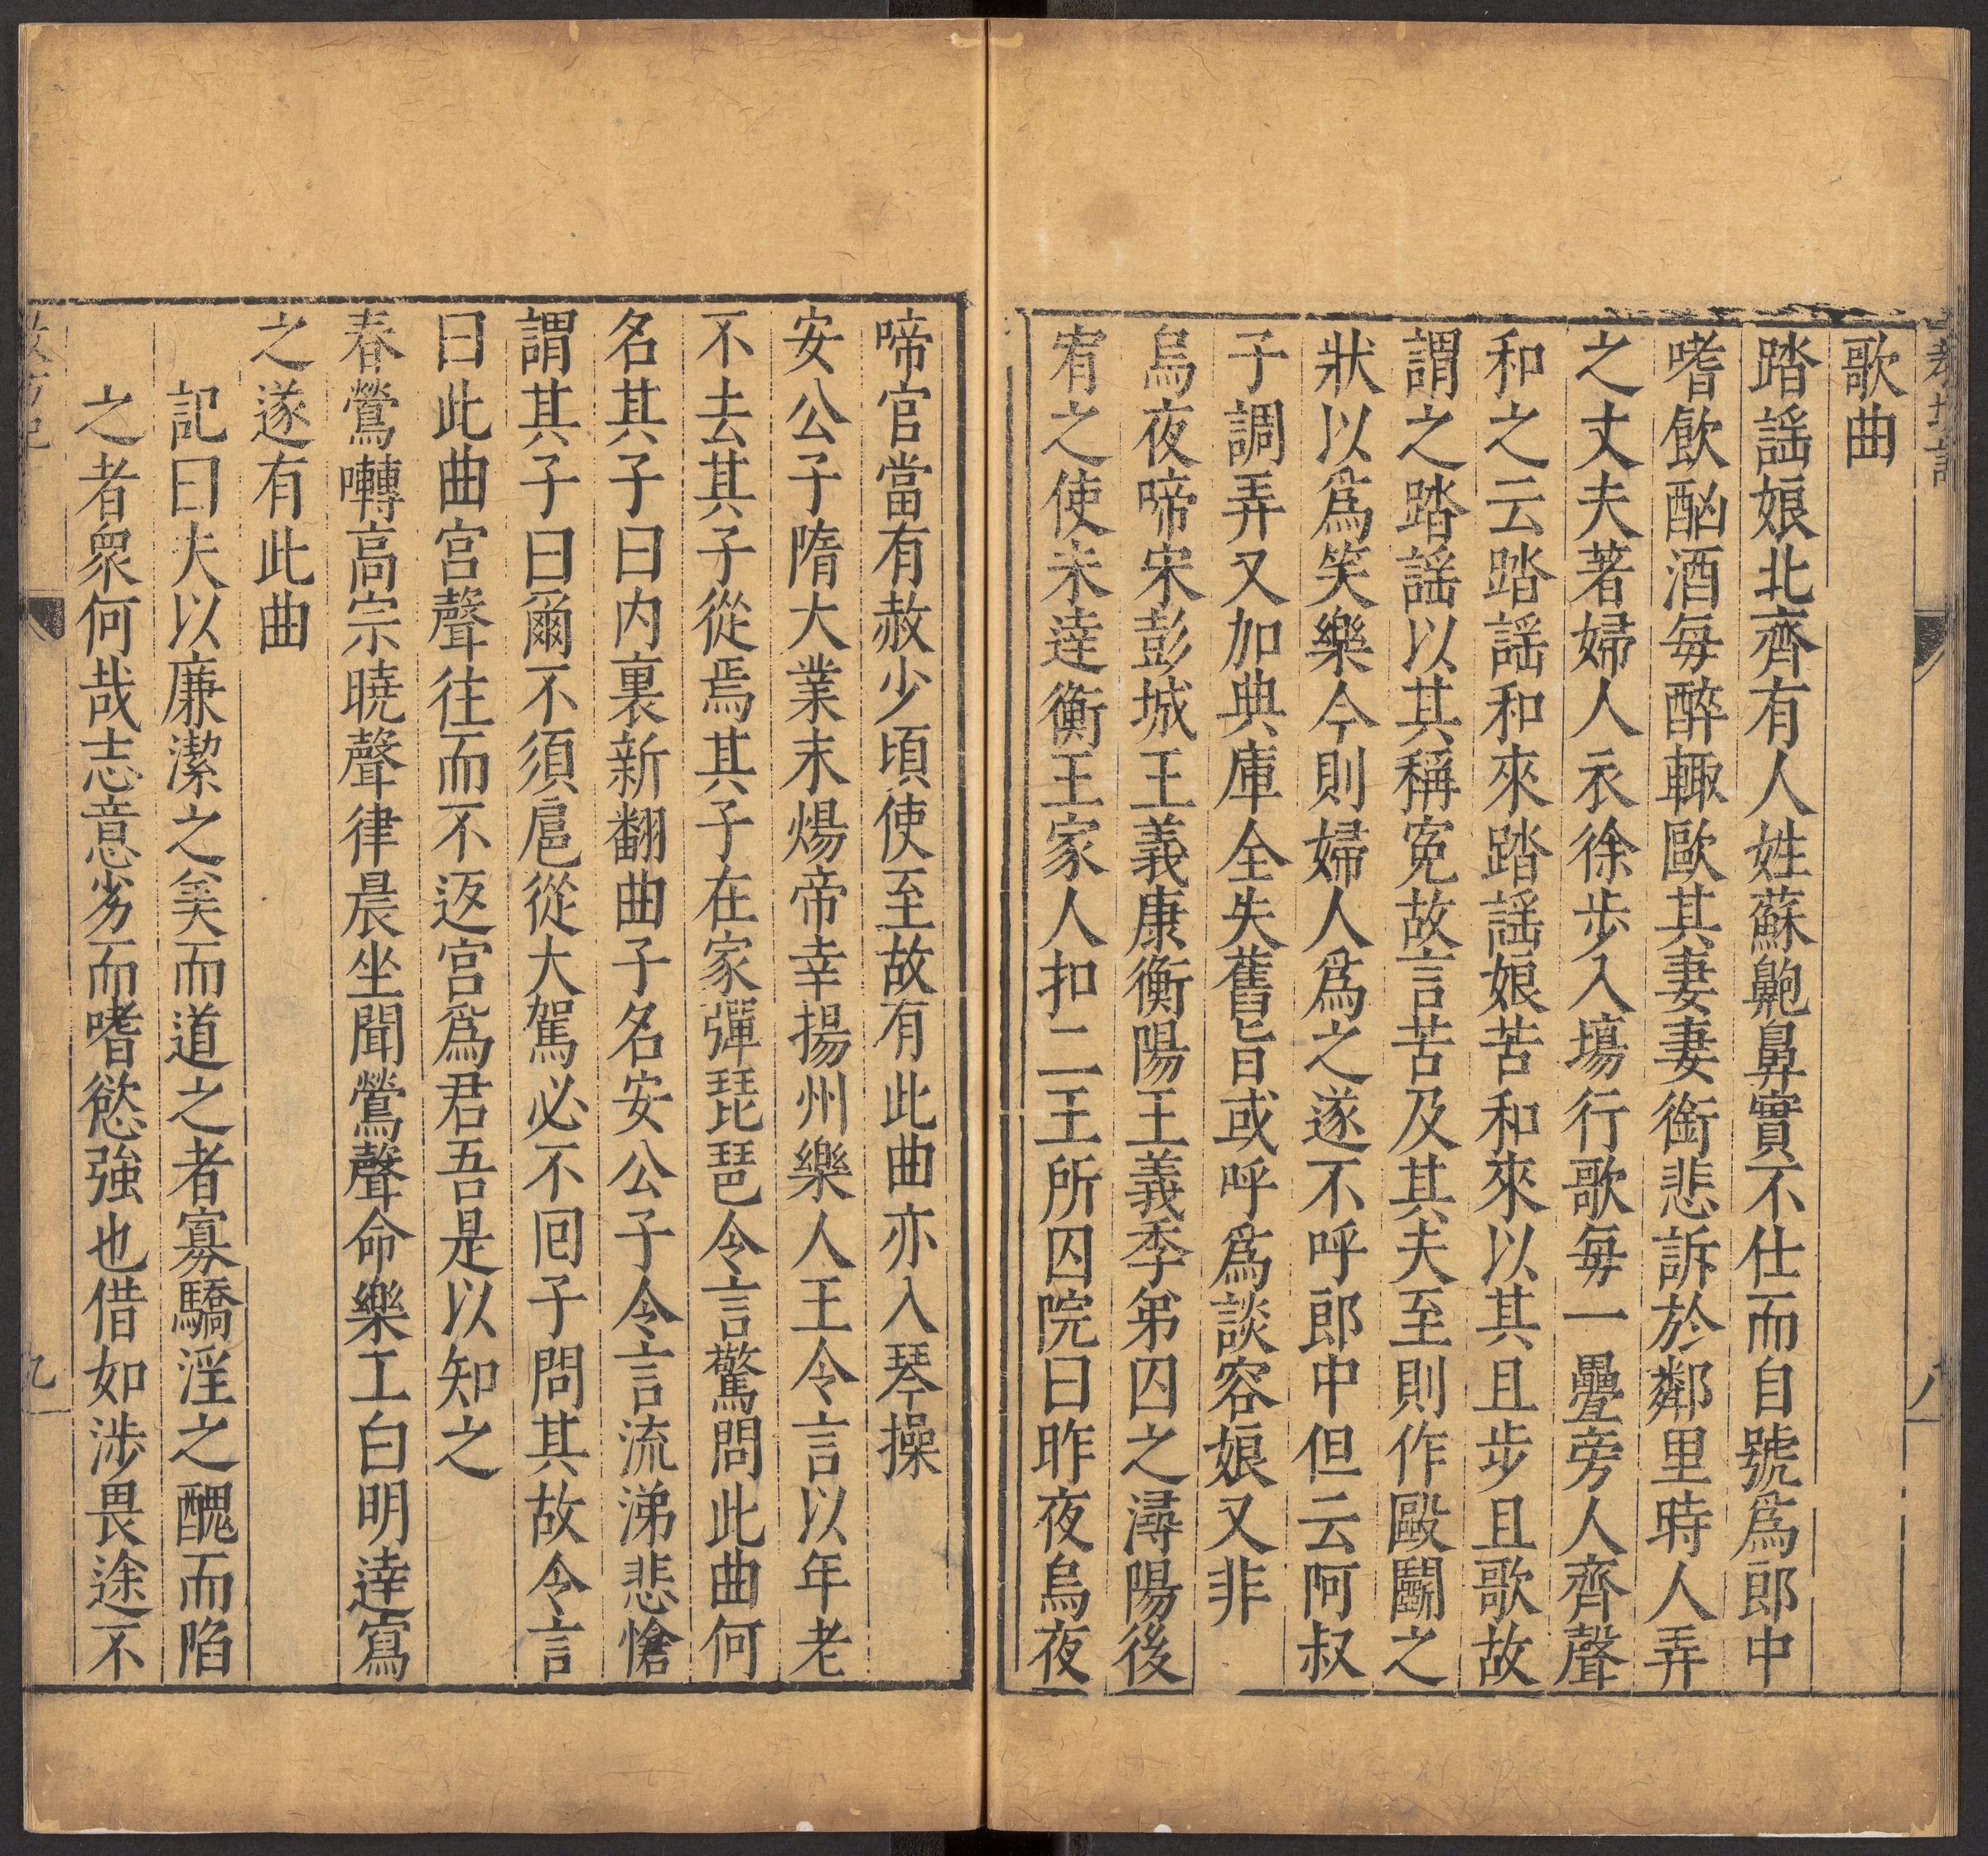 教坊記
八
歌曲
踏謡娘北齊有人姓蘇䶌鼻實不仕而自號爲郎中
嗜飲酗酒每醉輙歐其妻妻銜悲訴於鄰里時人弄
之丈夫著婦人衣徐步入塲行歌每一疊旁人齊聲
和之云踏謡和來踏謡娘苦和來以其且步且歌故
謂之踏謡以其稱寃故言苦及其夫至則作毆鬭之
狀以爲笑樂今則婦人爲之遂不呼郎中但云阿叔
子調弄又加典庫全失舊旨或呼爲談容娘又非
烏夜啼宋彭城王義康衡陽王義季弟囚之潯陽後
宥之使未逹衡王家人扣二王所囚院曰昨夜烏夜
啼官當有赦少頃使至故有此曲亦入琴操
安公子隋大業末煬帝幸揚州樂人王令言以年老
不去其子從焉其子在家彈琵琶令言驚問此曲何
名其子曰内裏新翻曲子名安公子令言流涕悲愴
謂其子曰爾不須扈從大駕必不囘子問其故令言
曰此曲宫聲往而不返宫爲君吾是以知之
春鶯囀高宗曉聲律晨坐聞鶯聲命樂工白明逹寫
之遂有此曲
記曰夫以廉潔之美而道之者寡驕淫之醜而陷
之者衆何哉志意劣而嗜慾強也借如涉畏途不
教坊記
九